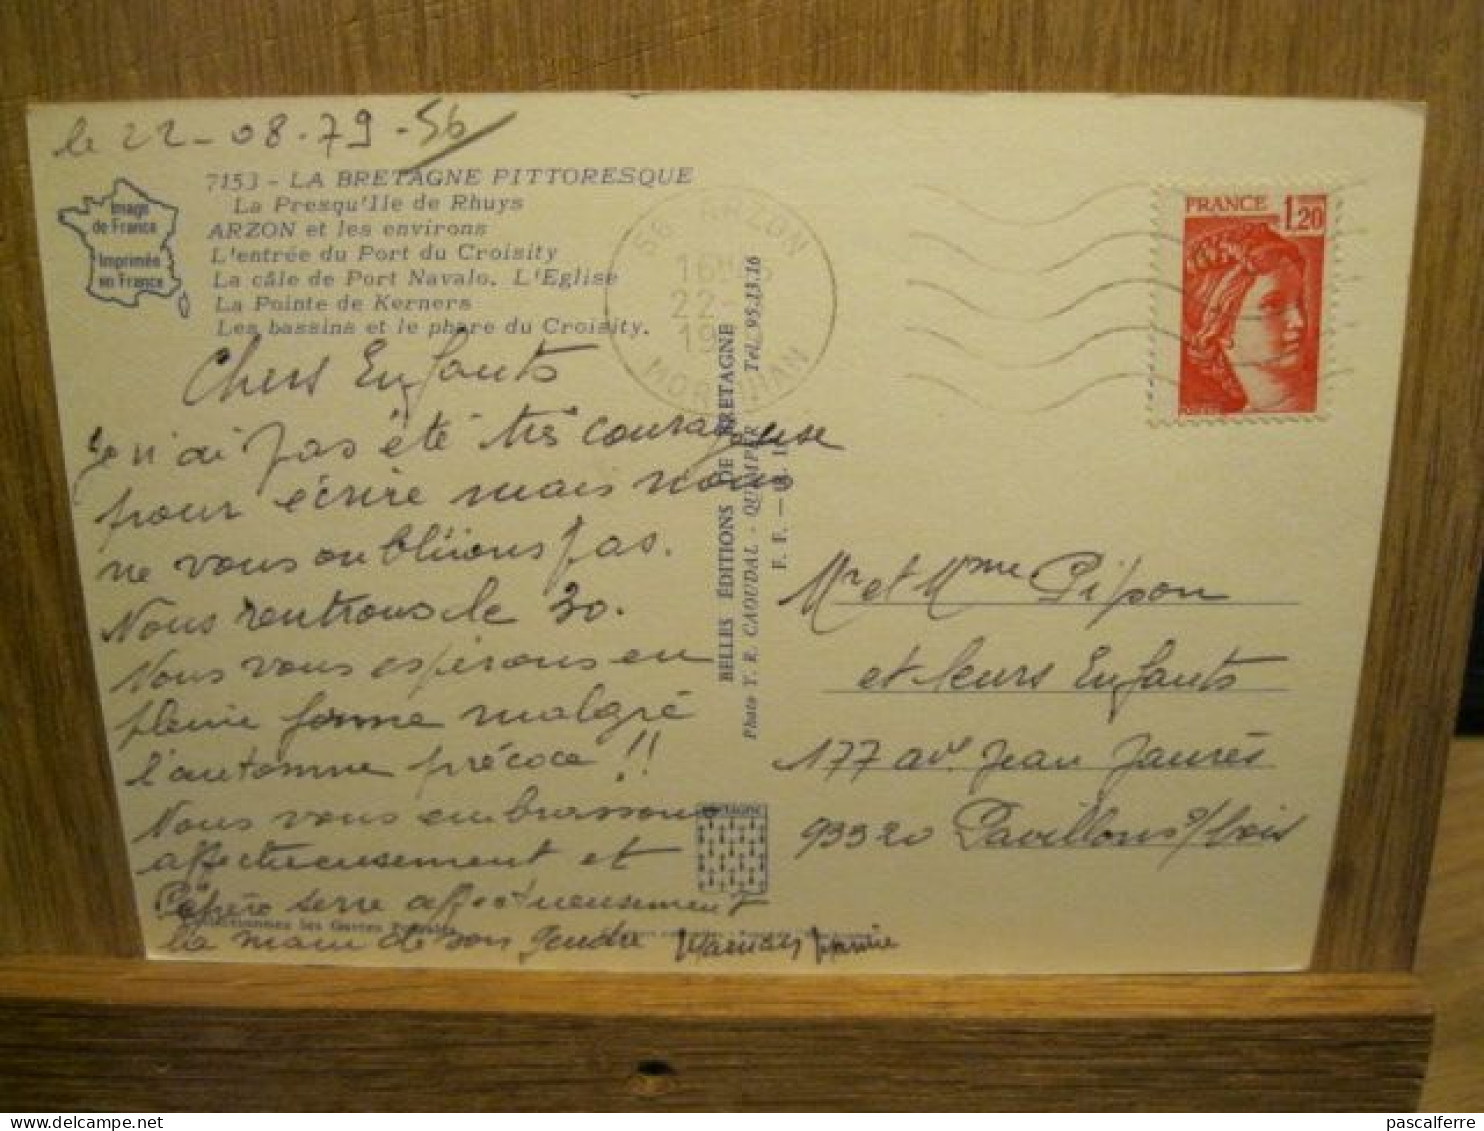 le 22-08-79-56
7153 - LA BRETAGNE PITTORESQUE
La Presqu'Ile de Rhuys
ARZON et les environs
L'entrée du Port du Croisity
La câle de Port Navalo. L'Eglise
La Pointe de Kerners
Les bassins et le phare du Croisity.
Image
de France
Imprimée
en France
Chers Enfants
Je n'ai pas été très courageuse
pour écrire mais nous
ne vous oublions pas.
Nous rentrons le 30.
Nous vous espérons en
pleine forme malgré
l'automne précoce !!
Nous vous embrassons
affectueusement et
Pépère serre affectueusement
la main de son gendre Maman Mamie
56 ARZON
22-
19
MORBIHAN
BELLES ÉDITIONS DE BRETAGNE
Photo Y. R. CAOUDAL - QUIMPER Tél. 95.13.16
BRETAGNE
FRANCE 1,20
Mr et Mme Pipon
et leurs Enfants
177 av. Jean Jaurès
93320 Pavillons s/bois
pascalferre